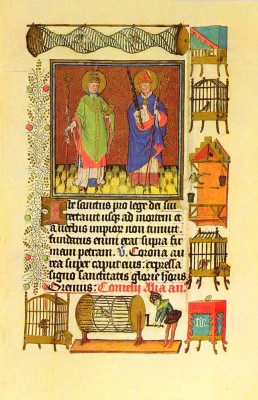 Iste sanctus pro lege dei sui
certauit usq ad mortem et
a uerbis impior non timuit
fundatus enim erat supra fir
mam petram. V. Corona au
rea super caput eius: expressa
signo sanctitatis glorie honoris
Oremus: Cornelij Alia an.